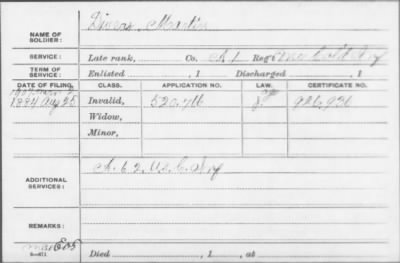 NAME OF SOLDIER: Martin
SERVICE: Late rank, Co. A, 1 Reg't Col'd Inf
TERM OF SERVICE: Enlisted , 1 Discharged , 1
DATE OF FILING. CLASS. APPLICATION NO. LAW. CERTIFICATE NO.
1884 Aug 25 Invalid, 520.716 926.936
Widow,
Minor,
ADDITIONAL SERVICES: A. 62. U.S.C. Inf
REMARKS:
3-471
Died , 1 , at